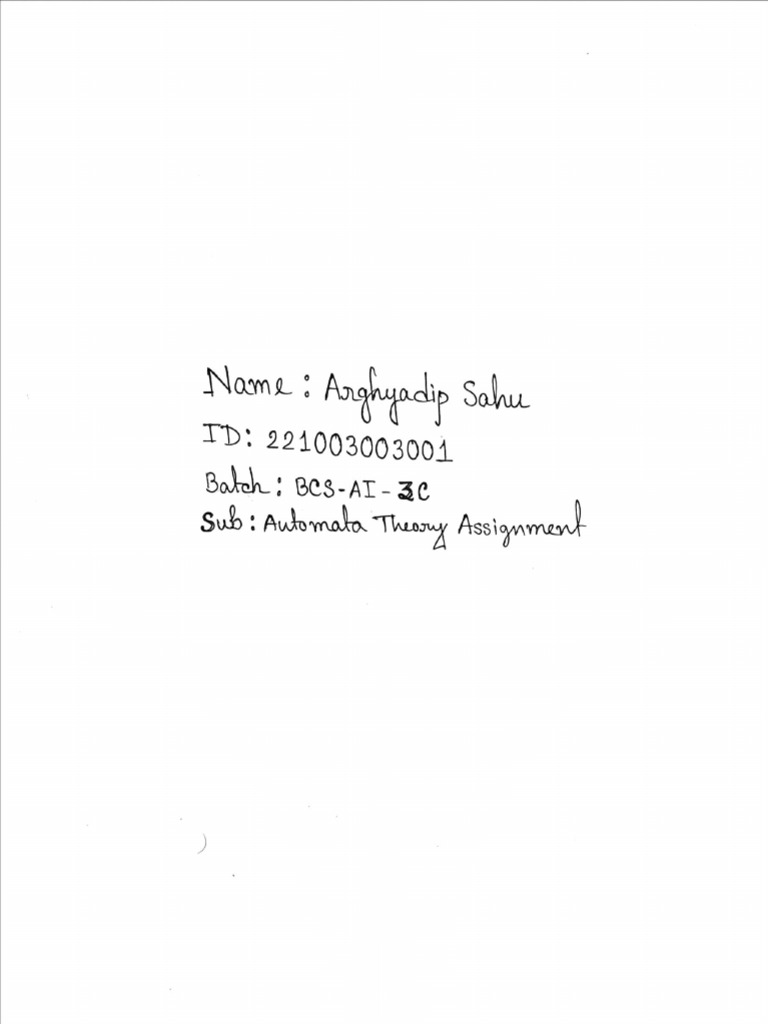 Name : Arghyadip Sahu
ID: 221003003001
Batch : BCS-AI-3C
Sub : Automata Theory Assignment